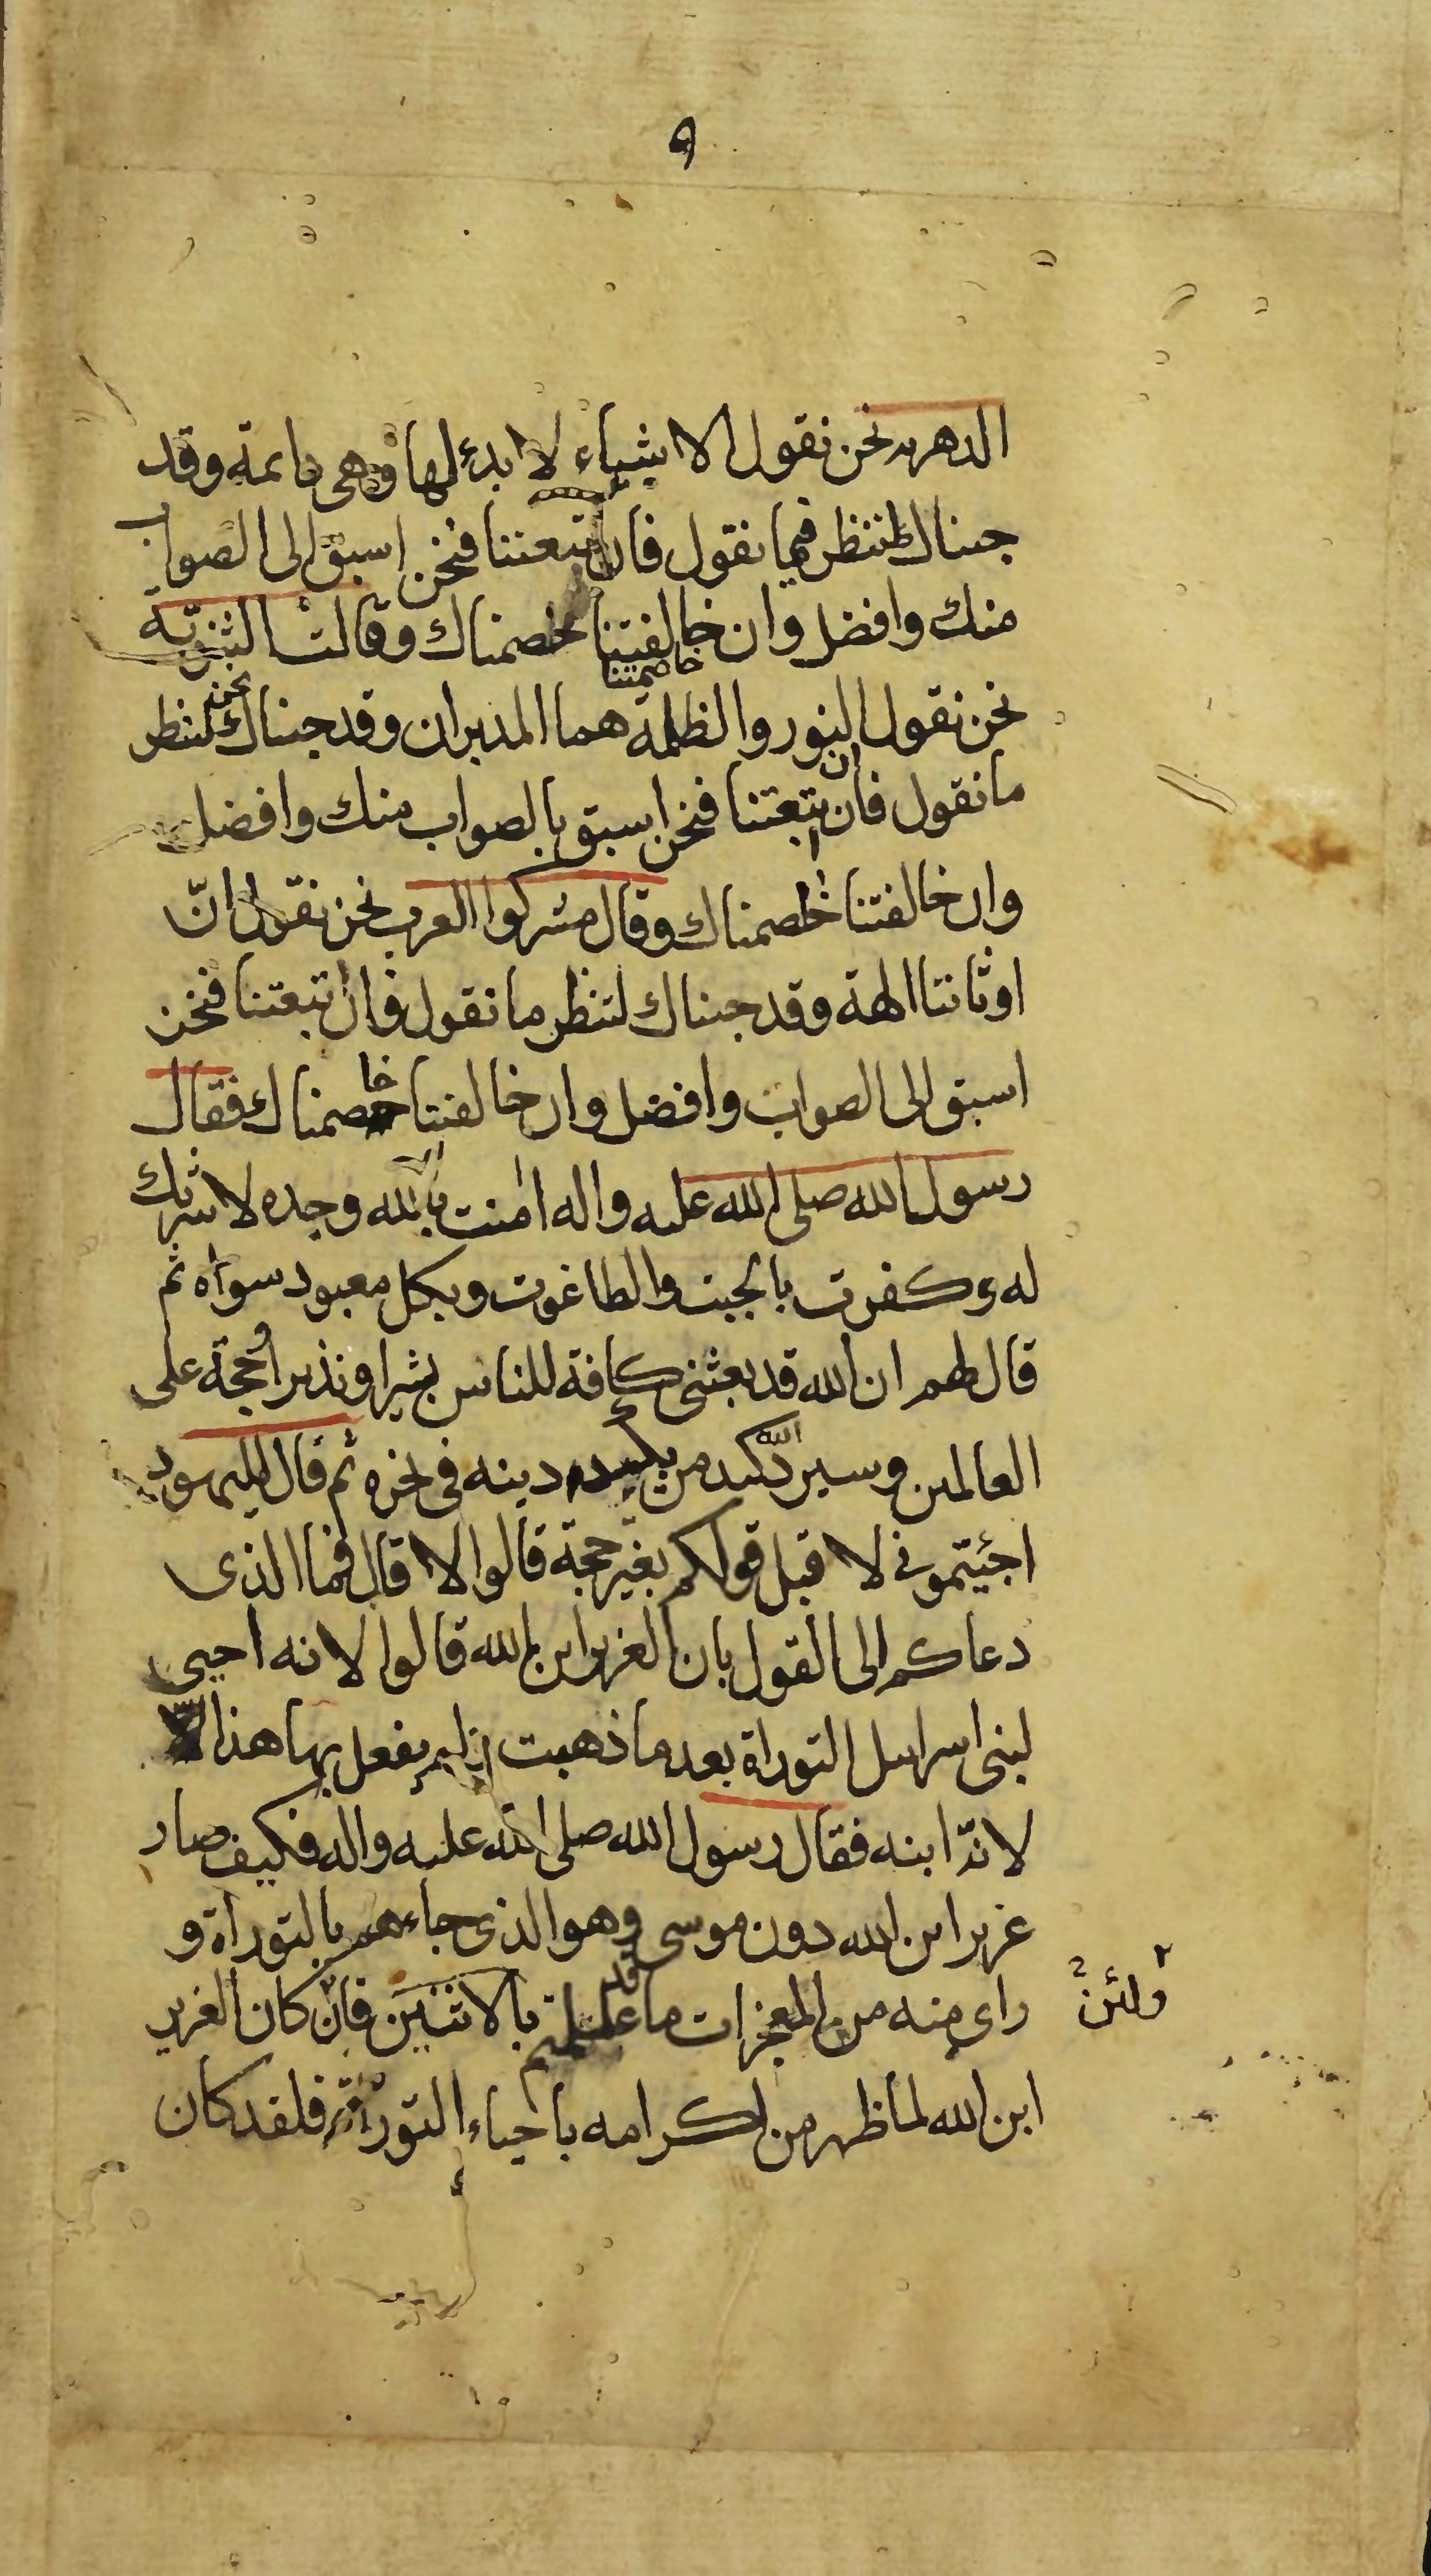 ٩
الدهريه نحن نقول الاشياء لا بدء لها وهى دائمة وقد
جئناك لننظر فيما نقول فان اتبعتنا فنحن اسبق الى الصواب
منك وافضل وان خالفتنا خاصمناك وقالت الثنوية
نحن نقول النور والظلمة هما المدبران وقد جئناك لننظر
ما نقول فان اتبعتنا فنحن اسبق بالصواب منك وافضل
وان خالفتنا خاصمناك وقال مشركوا العرب نحن نقول انّ
اوثاننا الهة وقد جئناك لننظر ما نقول فان اتبعتنا فنحن
اسبق الى الصواب وافضل وان خالفتنا خاصمناك فقال
رسول الله صلى الله عليه واله امنت بالله وحده لا شريك
له وكفرت بالجبت والطاغوت وبكل معبود سواه ثم
قال لهم ان الله قد بعثنى كافة للناس بشيرا ونذيرا وحجة على
العالمين وسيردّ الله كيد من يكيد دينه فى نحره ثم قال لليهود
اجئيتمونى لا قبل قولكم بغير حجة قالوا لا قال فما الذى
دعاكم الى القول بان العزير ابن الله قالوا لانه احيى
لبنى اسرايل التوراة بعد ما ذهبت ولم يفعل بها هذا الّا
لانّه ابنه فقال رسول الله صلى الله عليه واله فكيف صار
عزير ابن الله دون موسى وهو الذى جاءهم بالتوراة و
راى منه من المعجزات ما قد علمتم بالاثنين فان كان العزير
ولئن
ابن الله لما ظهر من اكرامه باحياء التوراة فلقد كان